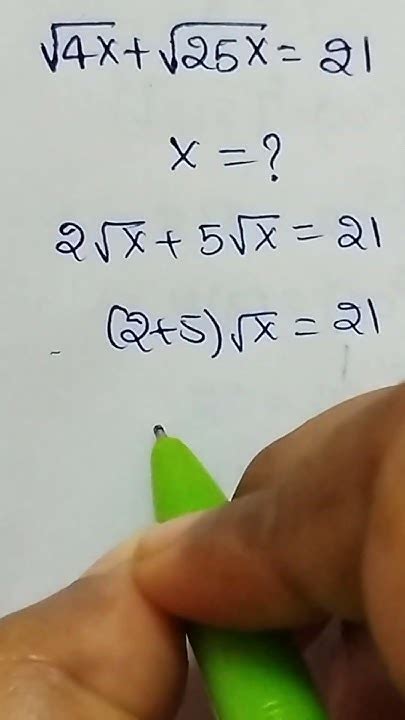 √4x + √25x = 21
x = ?
2√x + 5√x = 21
(2+5)√x = 21